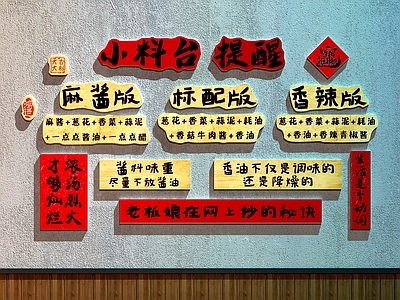 小料台 提醒
麻酱版
麻酱+葱花+香菜+蒜泥
+一点点酱油+一点点醋
标配版
葱花+香菜+蒜泥+耗油
+香菇牛肉酱+香油
香辣版
葱花+香菜+蒜泥+耗油
+香油+香辣青椒酱
浓汤烈火
才够灿烂
酱料味重
尽量不放酱油
香油不仅是调味的
还是降燥的
生活是个动词
老板娘在网上抄的秘诀